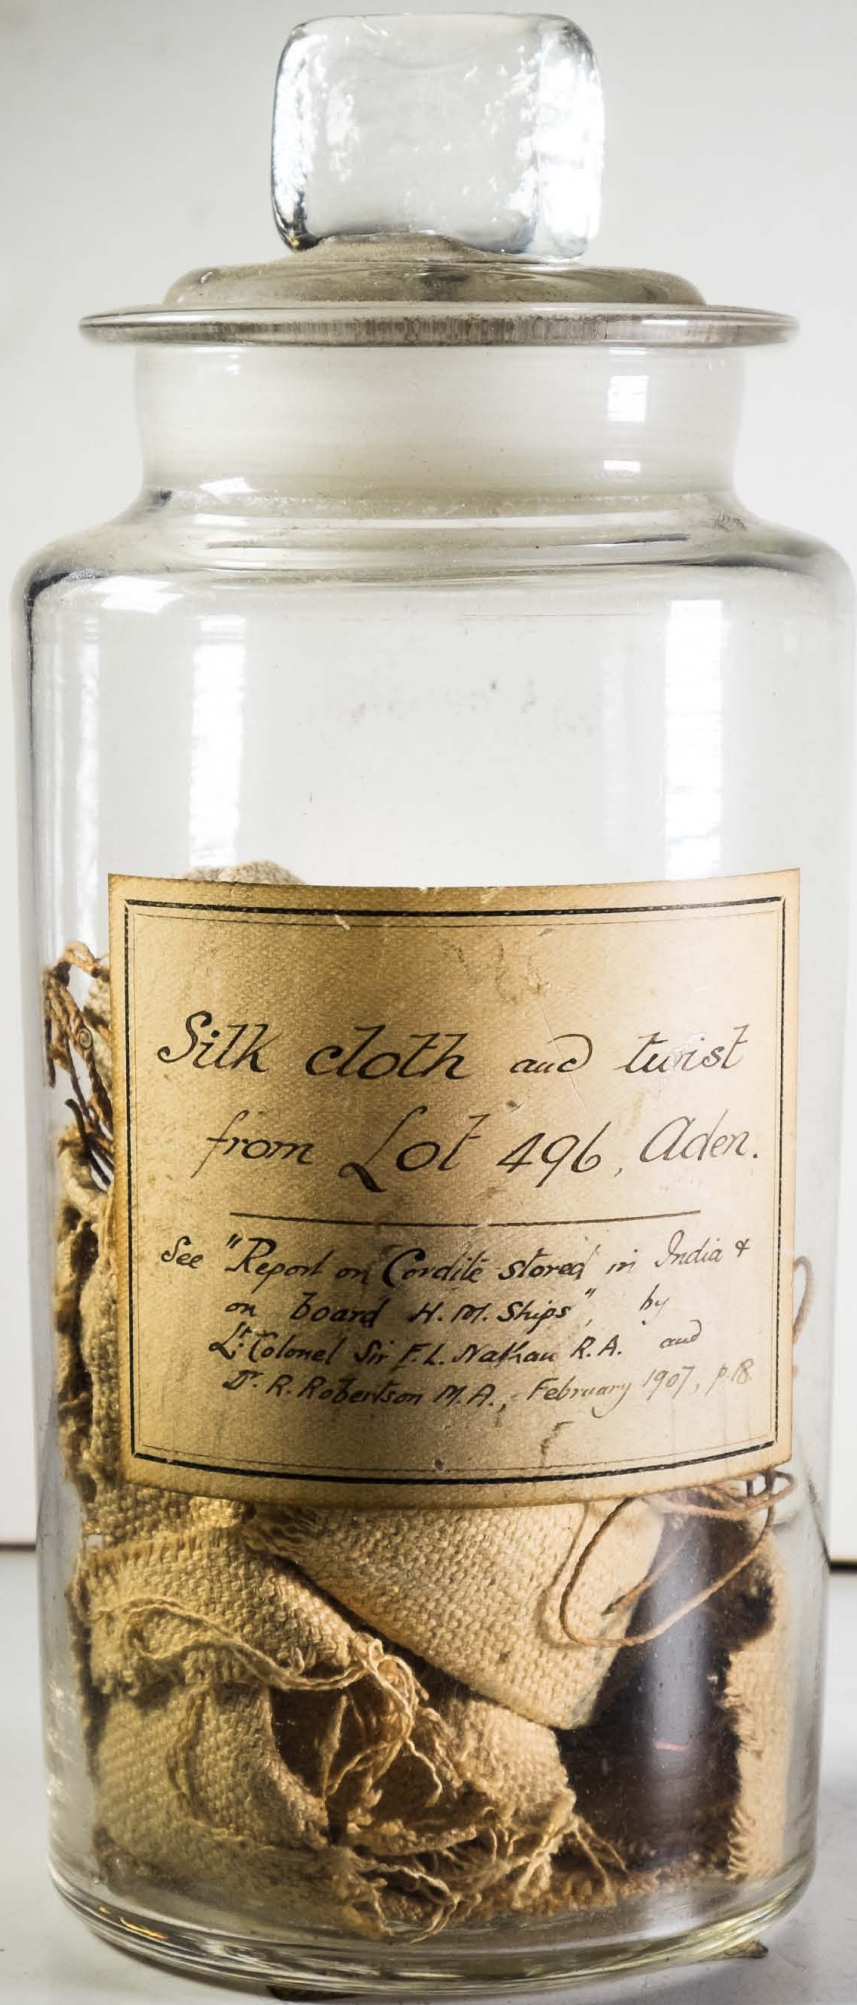 Silk cloth and twist
from Lot 496, Aden.
See "Report on Cordite stored in India &
on board H.M. Ships", by
Lt. Colonel Sir F.L. Nathan R.A. and
Dr. R. Robertson M.A., February 1907, p.18.